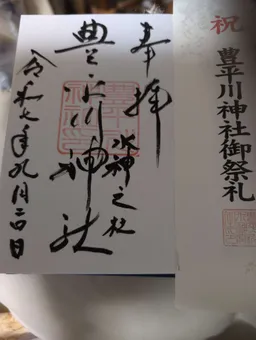 祝
豊平川神社御祭礼
奉拝
水神之社
豊平川神社
令和七年九月
日